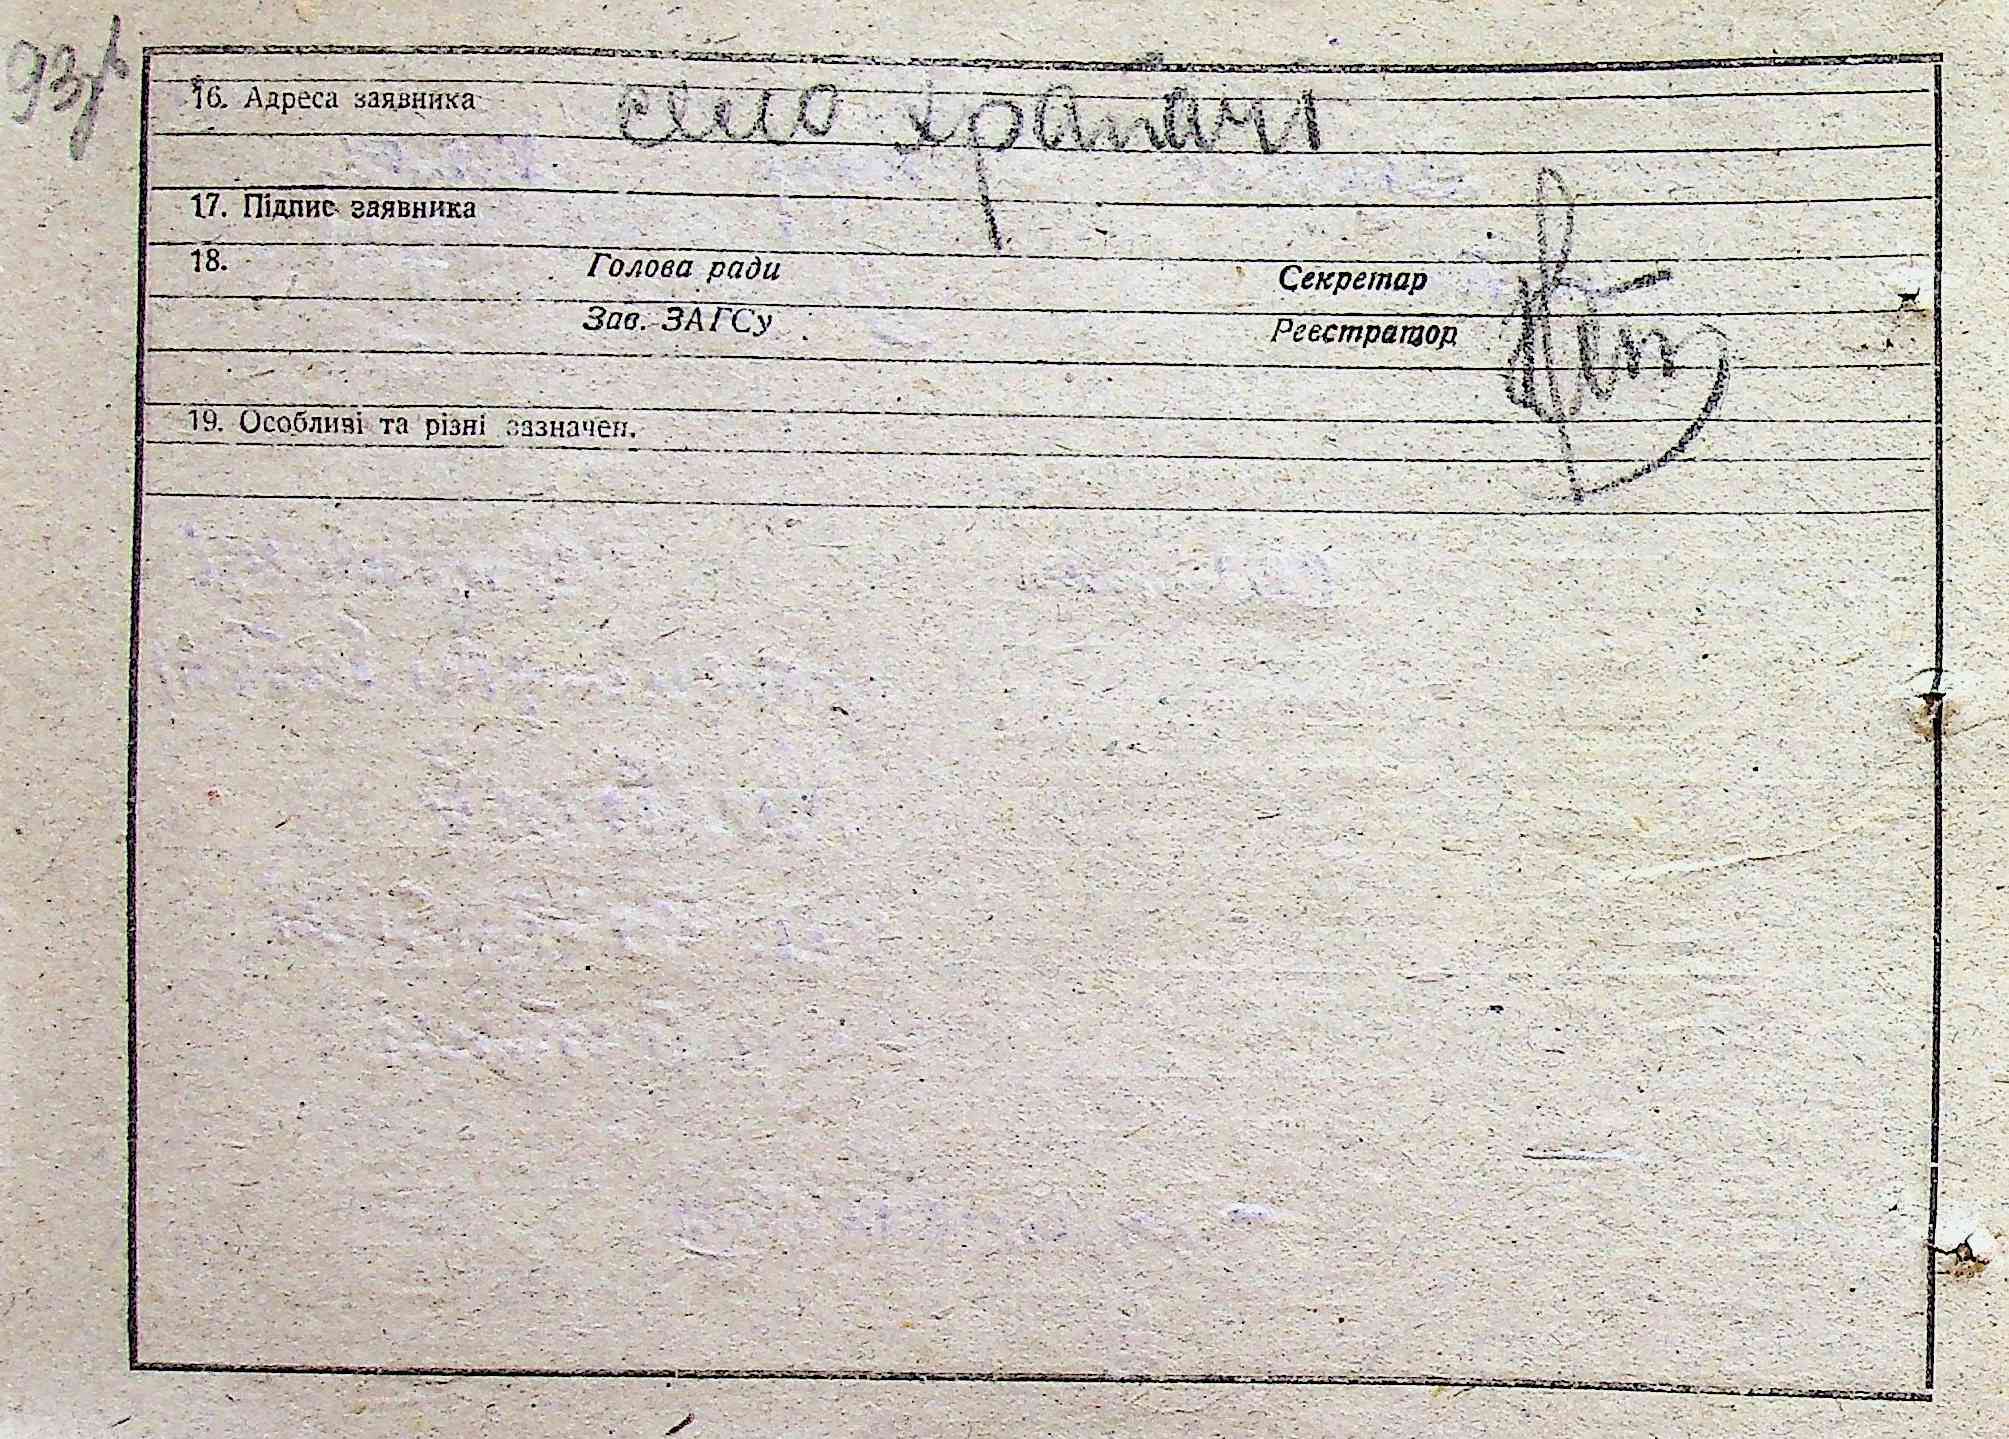 93
16. Адреса заявника село Храпачі
17. Підпис заявника
18. Голова ради Секретар
Зав. ЗАГСу Реєстратор
19. Особливі та різні зазначен.